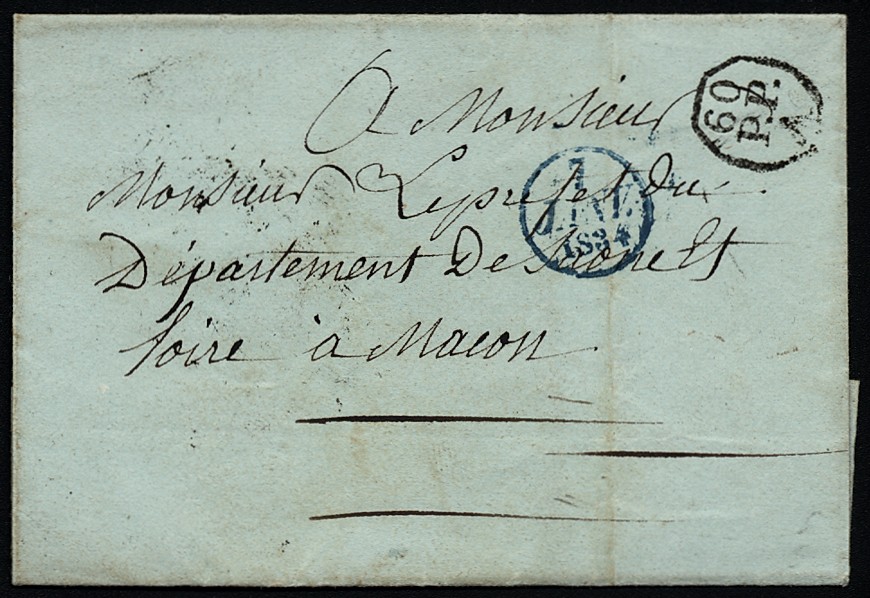 A Monsieur
Monsieur Leprefet du
Département De Saone Et
Loire à Macon
60
P.P.
7
JANV.
1834